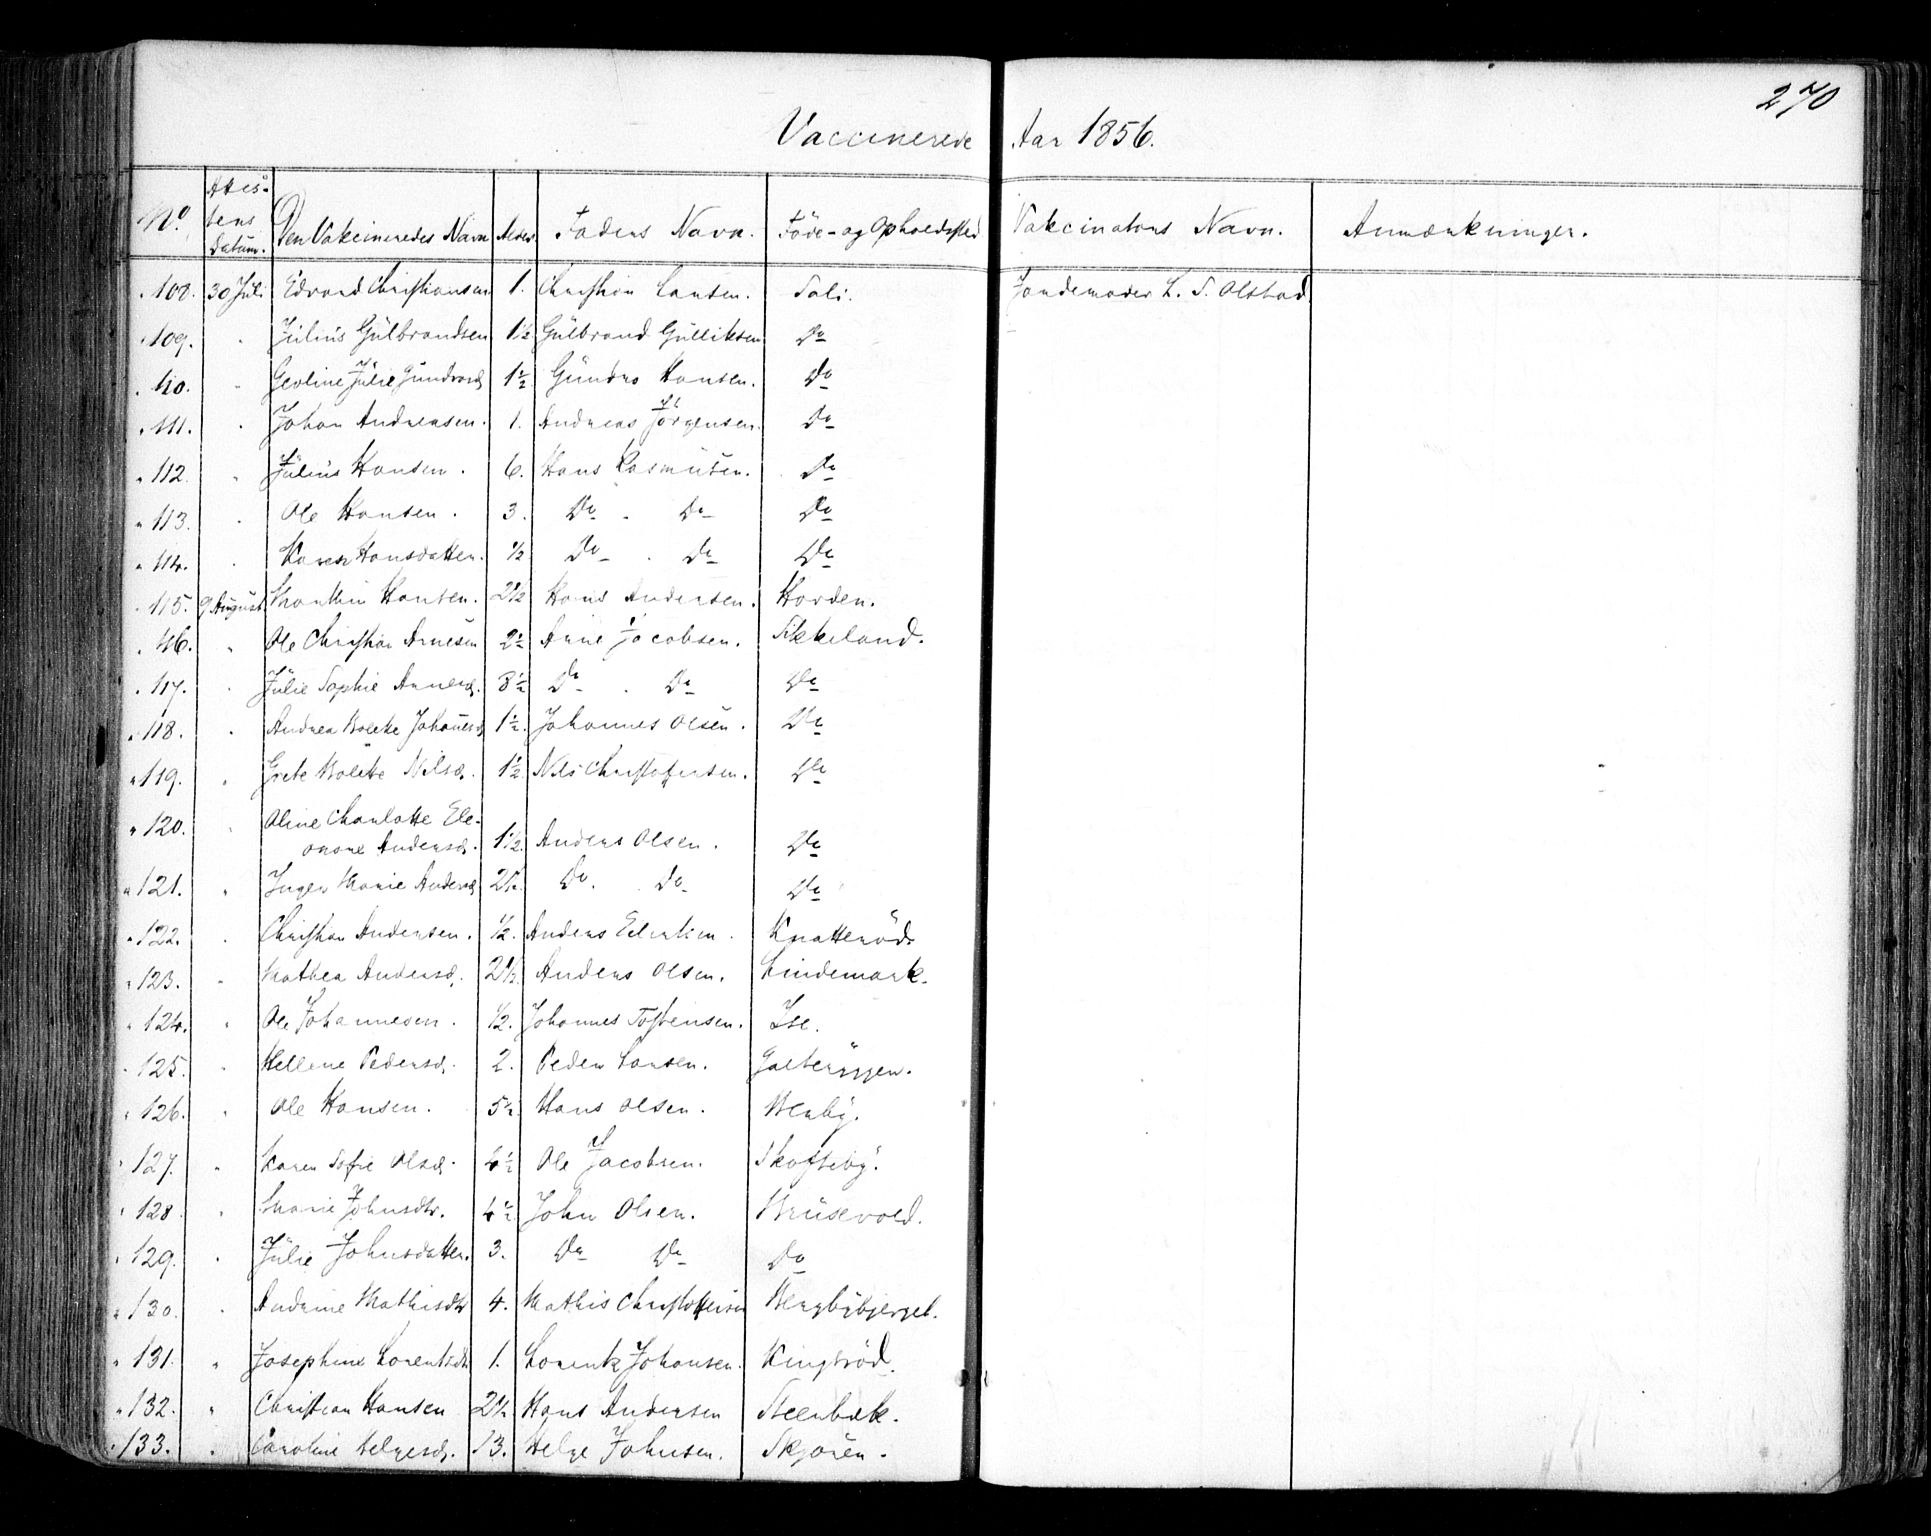 270
Vaccinerede Aar 1856.
No. Attestens Datum. Den Vakcineredes Navn Alder. Faders Navn. Föde- og Opholdsted Vakcinatörs Navn. Anmærkninger.
108. 30 Juli Edvard Christiansen 1. Christian Larsen. Sali. Jordemoder L. S. Olstad
109. Julius Gulbrandsen 1½ Gulbrand Gulliksen Do
110. Julie Gundersd. 1½ Gunder Hansen. Do
111. Johan Andreasen. 1. Andreas Jörgensen. Do
112. Julius Hansen. 6. Hans Rasmusen. Do
113. Ole Hansen. 3. Do Do Do
114. Karen Hansdatter. ½ Do Do Do
115. 9 August Marthin Hansen. 2½ Hans Andersen. Horden.
116. " Ole Christian Arnesen 2½ Arne Jacobsen. Sikkeland.
117. Julie Sophie Arnesd. 8½ Do Do Do
118. Andrea Bolette Johanesd. 1½. Johannes Olsen. Do
119. " Grete Bolette Nilsd. 1½ Nils Christofersen. Do
120. Oline Charlotte Ele-
onore Andersd. 1½. Anders Olsen. Do
121. " Inger Marie Andersd. 2½. Do Do Do
122. Christian Andersen. ½. Anders Eilertsen. Knatteröd.
123. Mathea Andersd. 2½. Anders Olsen. Lindemark.
124. " Ole Johannesen. ½. Johannes Tostensen. Ise.
125. Hellene Pedersd. 2. Peder Larsen. Galteryggen.
126. Ole Hansen. 5½ Hans Olsen.
127. " Karen Sofie Olsd. 4½ Ole Jacobsen. Skofteby.
128 " Marie Johnsdtr. 4½ John Olsen. Brusevold.
129. Julie Johnsdatter. 3. Do Do Do
130. Andrine Mathisdtr 4. Mathis Christoffersen Bergbybjerget.
131. " Josephine Lorentsdtr 1. Lorentz Johansen. Kingsröd.
132. " Christian Hansen 2½ Hans Andersen Steenbæk.
133. " Caroline Helgesd. 13. Helge Johnsen. Skjören.